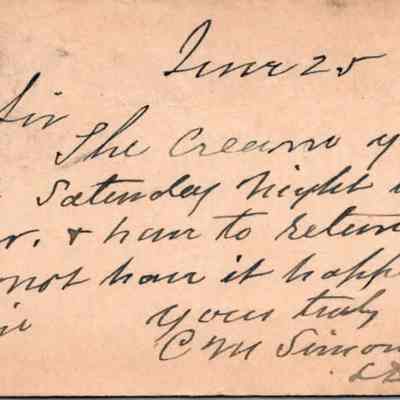 June 25
Sir
The Cream y
Saturday night
r. & have to return
not have it happ
yours truly
C M Simon